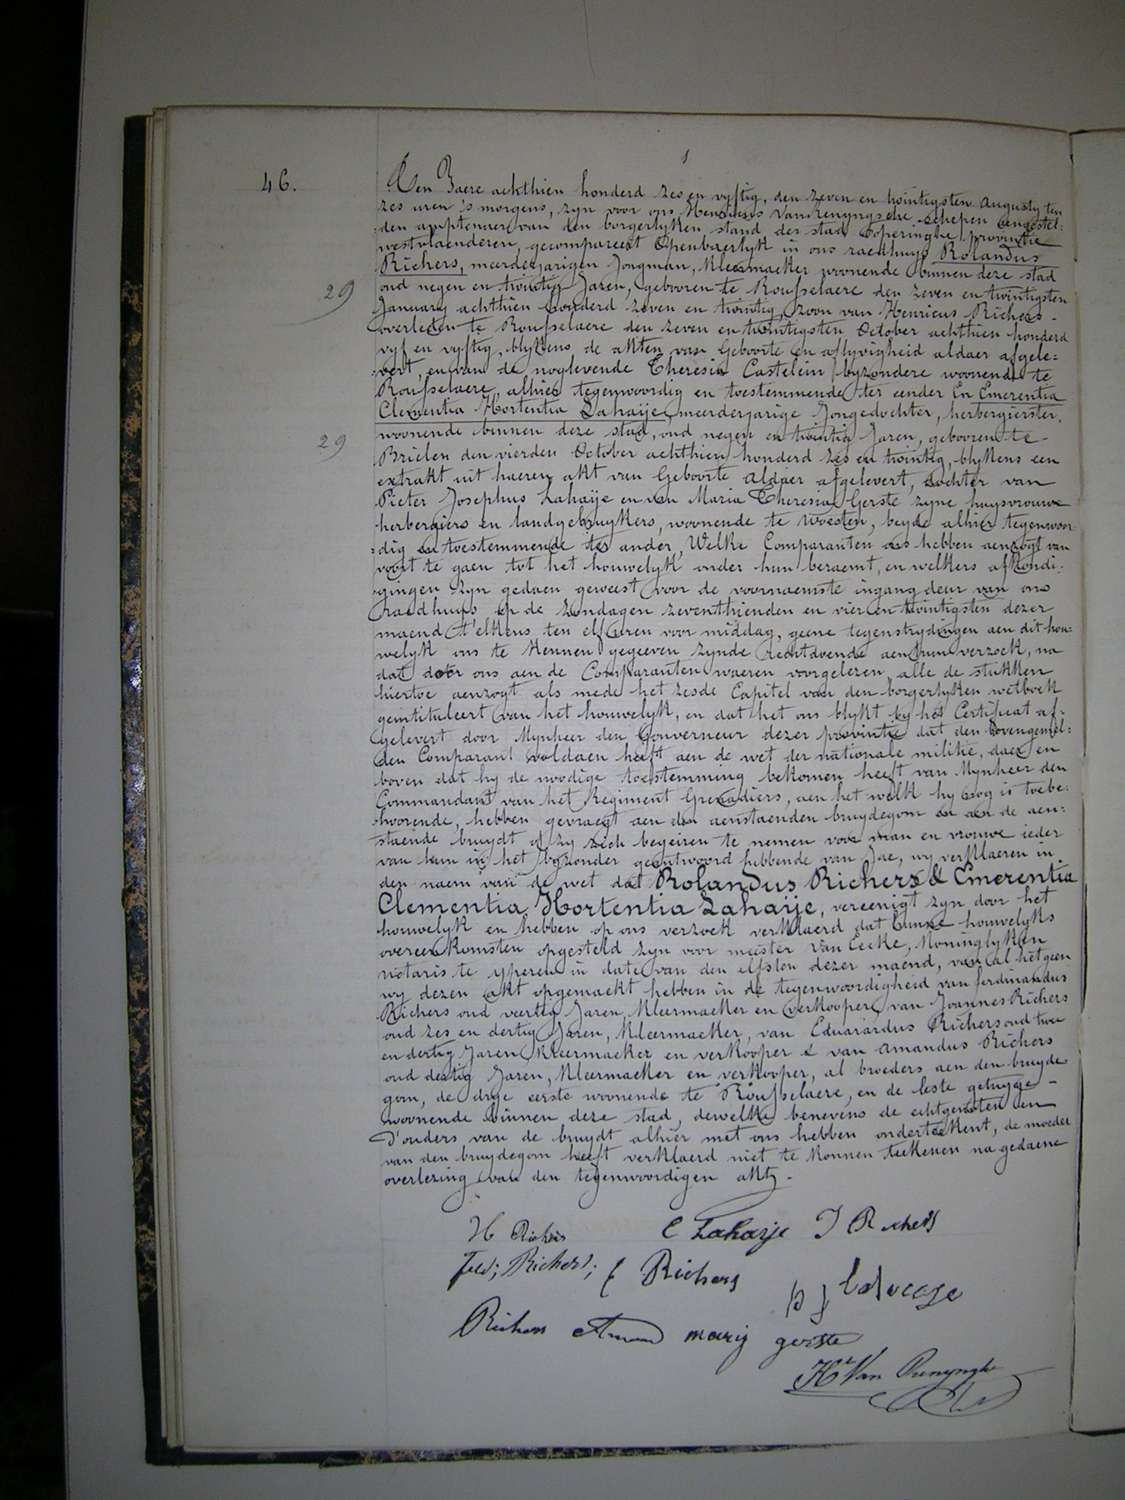 46.
Den Jaere achthien honderd zes en vyftig, den zeven en twintigsten Augusty ten
zes uren 's morgens, zyn voor ons Henricus Van Renynghe schepen aengestel:
:den amptenaer van den borgerlyken stand der stad Poperinghe, provintie
westvlaenderen, gecompareert Openbaerlyk in ons raedhuys Rolandus
Richers, meerderjarigen Jongman, Kleermaeker woonende binnen deze stad
29
oud negen en twintig Jaren, gebooren te Rousselaere den zeven en twintigsten
January achthien honderd zeven en twintig, zoon van Henricus Richers -
overleden te Rousselaere den zeven en twintigsten October achthien honderd
vyf en vyftig, blykens de akten van Geboorte en aflyvigheid aldaer afgele=
:vert, en van de noglevende Theresia Castelein byzondere woonende te
Rousselaere, alhier tegenwoordig en toestemmende ter eender En Emerentia
Clementia Hortentia Lahaije, meerderjarige Jongedochter, herbergierster,
29
woonende binnen deze stad, oud negen en twintig Jaren, gebooren te -
Brielen den vierden October achthien honderd zes en twintig, blykens een
extrakt uit haeren akt van Geboorte aldaer afgelevert, dochter van
Pieter Josephus Lahaije en van Maria Theresia Gerste zyne huysvrouwe
herbergiers en landgebruykers, woonende te Woesten, beyde alhier tegenwoor
:dig en toestemmende ter ander, Welke Comparanten ons hebben aenzogt van
voort te gaen tot het houwelyk onder hun beraemt, en welkers afkondi:
:gingen zyn gedaen geweest voor de voornaemste ingang deur van ons
raedhuys op de Zondagen zeventhienden en vier en twintigsten dezer
maend t'elkens ten elf uren voor middag, geene tegenstrydingen aen dit hou=
welyk ons te Kennen gegeven zynde rechtdoende aen hun verzoek, na
dat door ons aen de Comparanten waeren voorgelezen alle de stukken
hiertoe aenzogt als mede het zesde Capitel van den borgerlyken wetboek
geintituleert van het houwelyk, en dat het ons blykt by het Certificat af-
gelevert door Mynheer den Gouverneur dezer provintie dat den bovengemel:
den Comparant voldaen heeft aen de wet der nationale militie, daer en
boven dat hy de noodige toestemming bekomen heeft van Mynheer den
Commandant van het Regiment Grenadiers, aen het welk hy nog is toebe:
:hoorende, hebben gevraegt aen den aenstaenden bruydegom en aen de aen:
staende bruydt of zy zich begeiren te nemen voor man en vrouwe ieder
van hun in het byzonder geantwoord hebbende van Jae, wy verklaeren in
den naem van de wet dat Rolandus Richers & Emerentia
Clementia Hortentia Lahaije, vereenigt zyn door het
houwelyk en hebben op ons verzoek verklaerd dat hunne houwelyks
overeenkomsten opgesteld zyn voor meester Van Eecke, Koninglyken
notaris te yperen in date van den elfsten dezer maend, van al het geen
wy dezen akt opgemaekt hebben in de tegenwoordigheid van ferdinandus
Richers oud veertig Jaren, Kleermaeker en verkooper, van Joannes Richers
oud zes en dertig Jaren, Kleermaeker, van Eduarardus Richers oud twee
en dertig Jaren Kleermaeker en verkooper & van Amandus Richers
oud dertig Jaren, Kleermaeker en verkooper, al broeders aen den bruyde
gom, de drye eerste woonende te Rousselaere, en de leste getuyge -
woonende binnen deze stad, dewelke benevens de echtgenoten en
D'ouders van de bruydt alhier met ons hebben onderteekent, de moeder
van den bruydegom heeft verklaerd niet te konnen teekenen na gedaene
overlezing van den tegenwoordigen akt -
H Richers C Lahaije J Richers
Ferd; Richers; E Richers
Richers Amand marij gerste
H.ri Van Renynghe